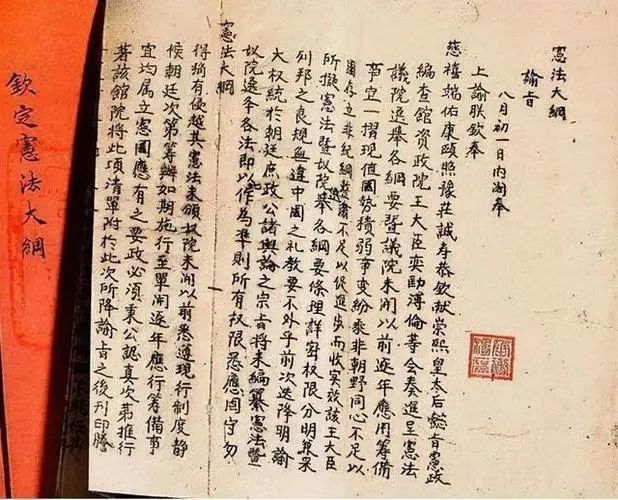 憲法大綱
諭旨
八月初一日内阁奉
上諭朕欽奉
慈禧端佑康頤昭豫莊誠寿恭钦献崇熙皇太后懿旨憲政
編查館資政院王大臣奕劻溥倫等会奏進呈憲法
議院选举各綱要暨議院未開以前逐年應用筹備
事宜一摺現值國勢積弱事变紛乘非朝野同心不足以
圖存立非紀綱整肅不足以促進步而收实效該王大臣
所擬憲法暨奴院选举各綱要條理詳密权限分明兼采
列邦之良規無違中國之礼教要不外乎前次迭降明諭
大权統於朝廷庶政公諸輿論之宗旨將来編纂憲法暨
奴院选举各法即以作為準則所有权限悉應固守勿
憲法大綱
得稍有侵越其憲法未頒奴院未開以前悉遵現行制度静
候朝廷次第筹辦如期施行至單開逐年應行筹備事
宜均属立憲國應有之要政必須秉公認真次第推行
著該館院將此項清單附於此次所降諭旨之後刊印謄
欽定憲法大綱